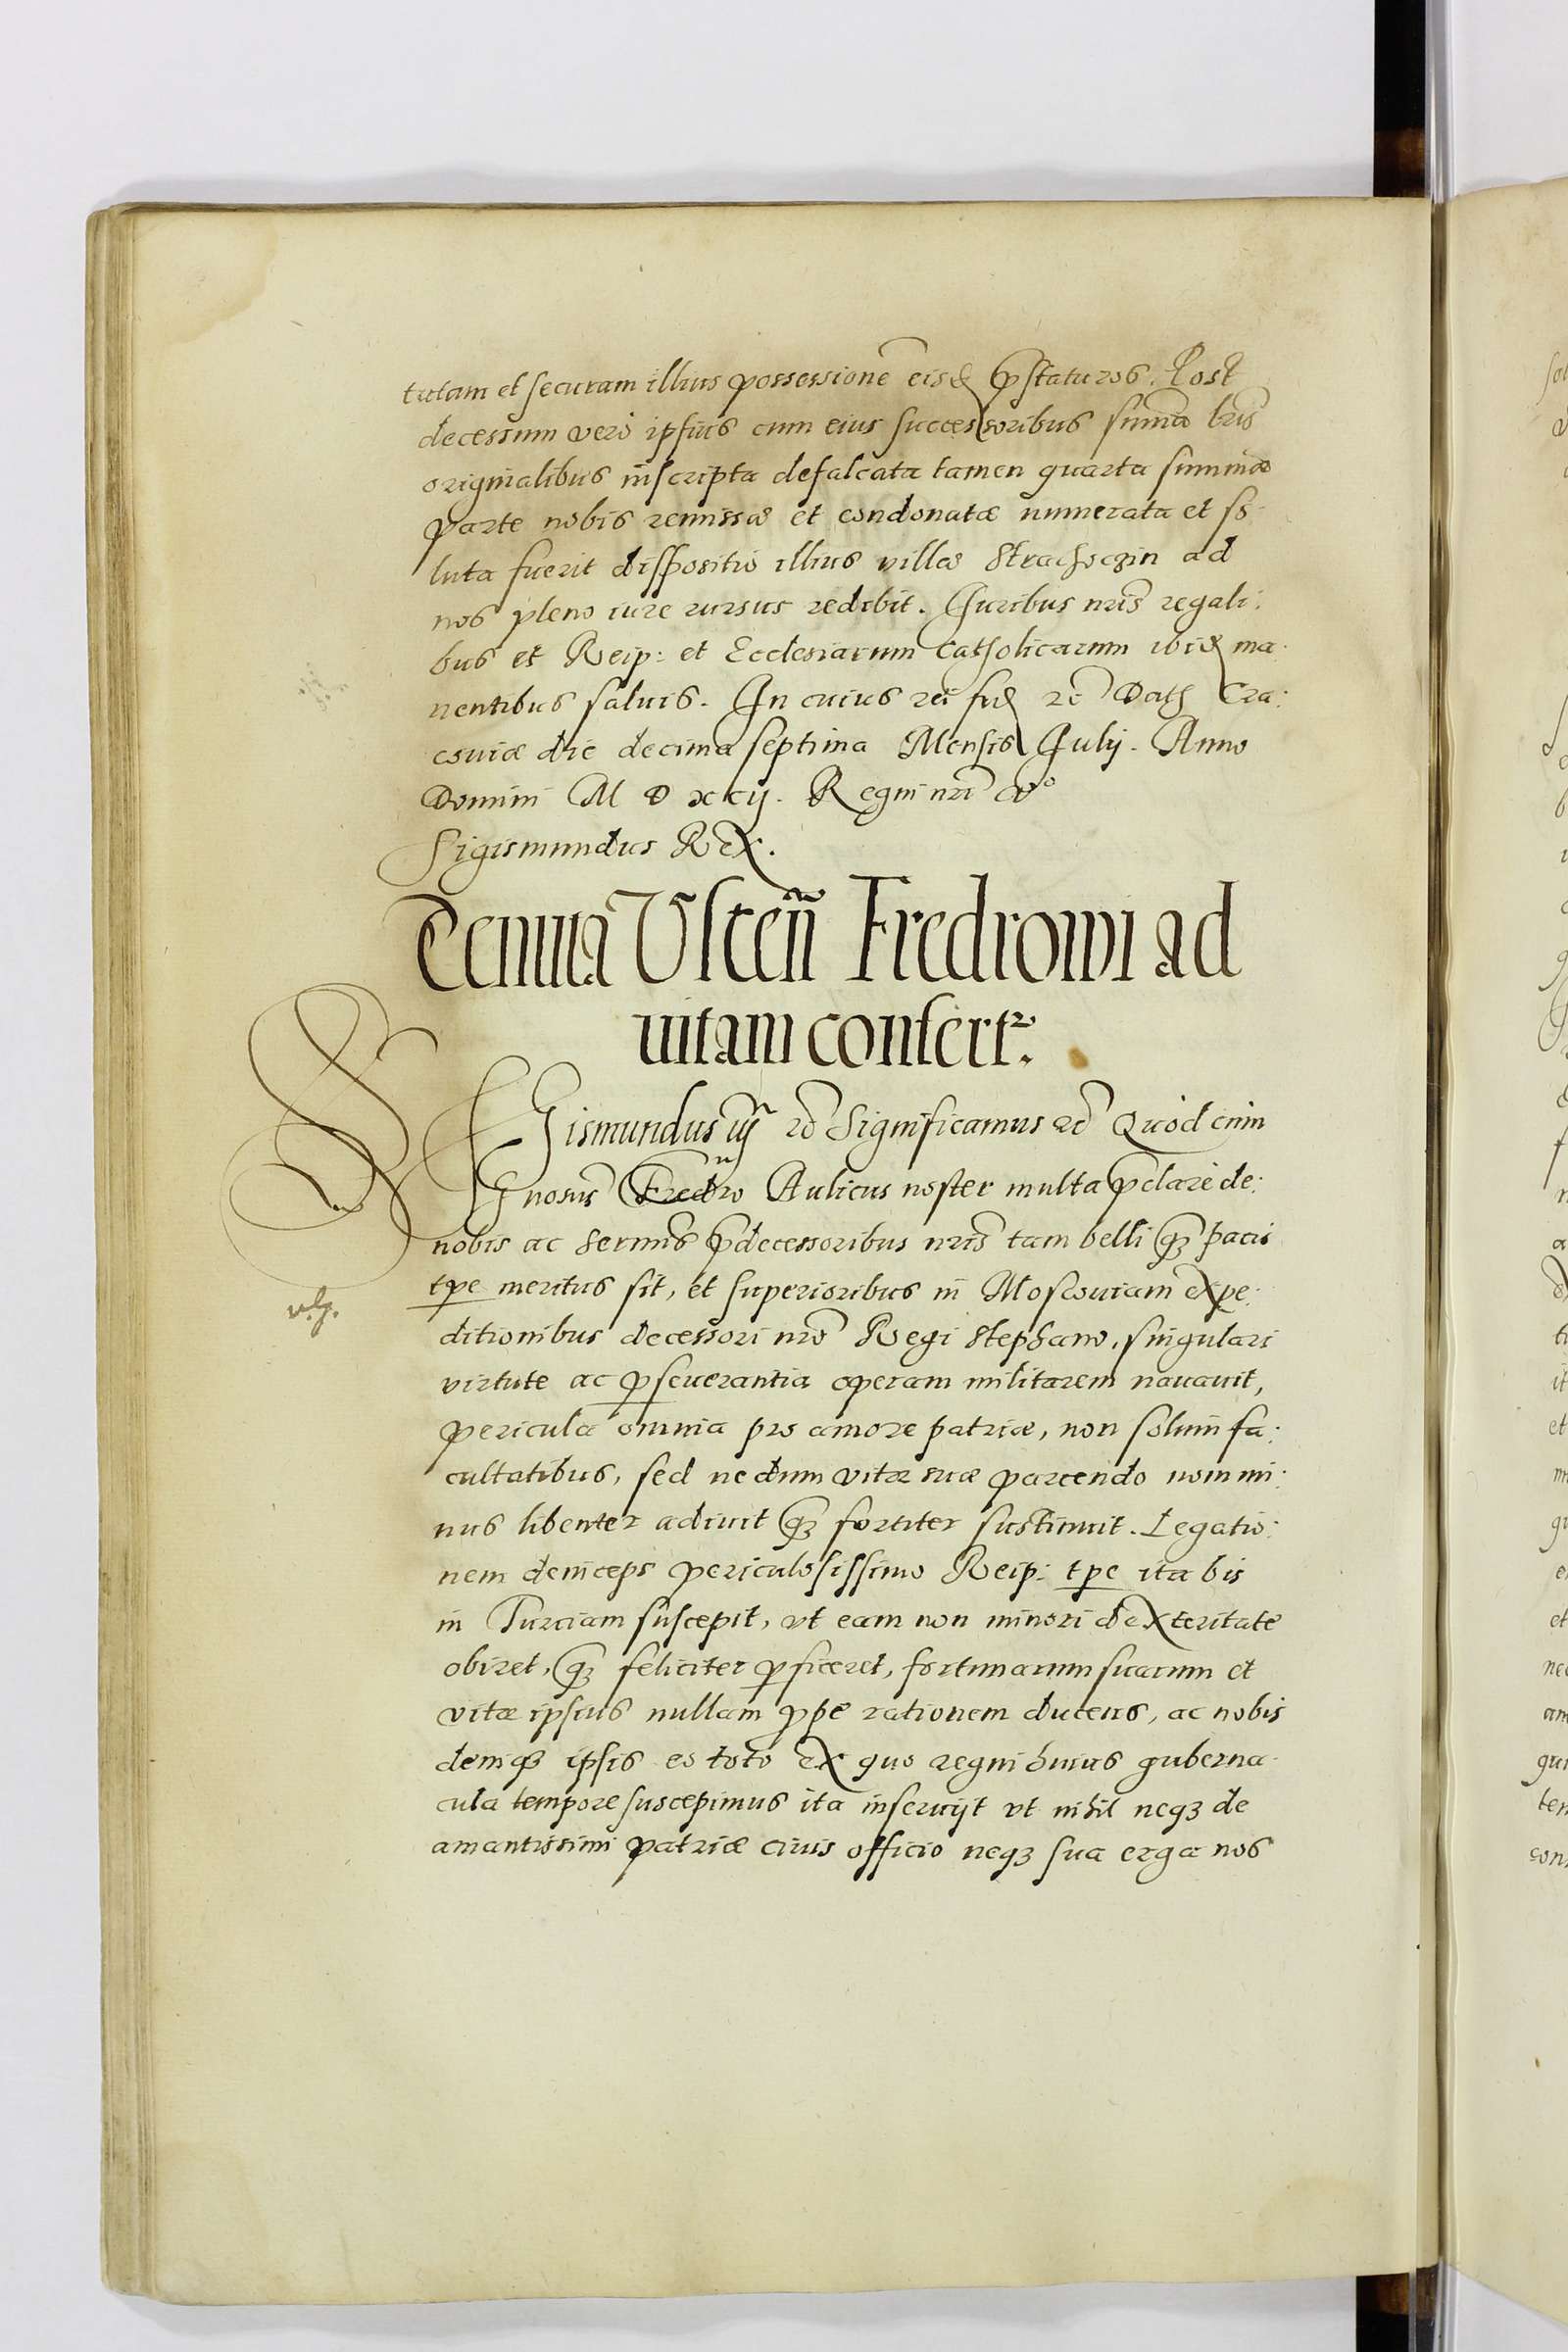 tutam et securam illius possessionē eisd pstaturos. Post
decessum vero ipsius cum eius successoribus suma lris
originalibus inscripta defalcata tamen quarta summæ
parte nobis remissæ et condonatæ numerata et so-
luta fuerit dispositio illius villæ Strachoczin ad
nos pleno iure rursus redibit. Juribus nris regali:
bus et Reip: et Ecclesiarum Catholicarum ibid ma-
nentibus saluis. In cuius rei fid rc Dath Cra:
couiæ die decima septima Mensis Julij. Anno
Domini M D xcij. Regni nri vº
Sigismundus Rex.
Tenuta Usceñ Fredrowi ad
uitam confertr.
SIGismundus iij rc Significamus rc Quod cum
Gnosus Fredro Aulicus noster multa pclare de:
nobis ac sermis pdecessoribus nris tam belli q3 pacis
tpe meritus sit, et superioribus in Moscouiam expe:
ditionibus decessori nro Regi Stephano, singulari
virtute ac pseuerantia operam militarem nauauit,
pericula omnia pro amore patriæ, non solum fa:
cultatibus, sed nedum vitæ suæ parcendo non mi:
nus libenter adiuit q3 fortiter sustinuit. Legatio:
nem deinceps periculosissimo Reip: tpe ita bis
in Turciam suscepit, vt eam non minori dexteritate
obiret, q3 feliciter pficeret, fortunarum suarum et
vitæ ipsius nullam ppe rationem ducens, ac nobis
deniq3 ipsis eo toto ex quo regni huius guberna-
cula tempore suscepimus ita inseruijt vt nihil neq3 de
amantissimi patriæ ciuis officio neq3 sua erga nos